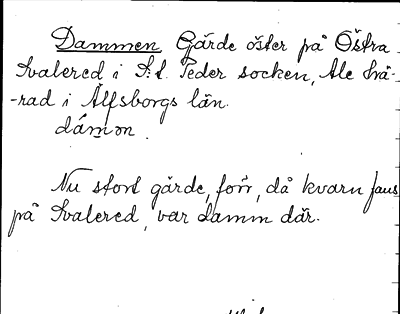 Dammen Gärde öster på Östra
Kvalered i S:t Peder socken, Ale hä-
-rad i Älfsborgs län.
dám̥ən.
Nu stort gärde, förr, då kvarn fans
på Kvalered, var damm där.